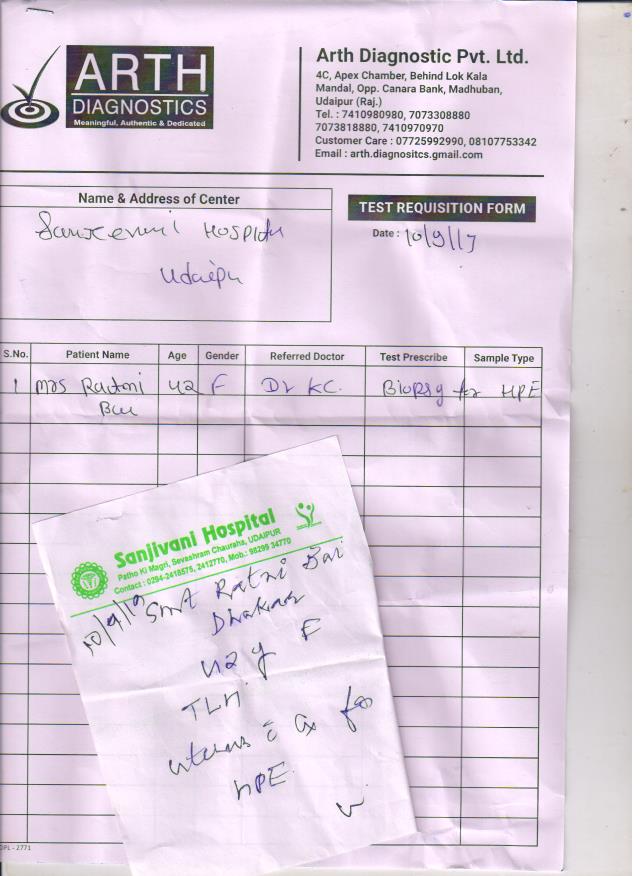 ARTH
DIAGNOSTICS
Meaningful, Authentic & Dedicated
Arth Diagnostic Pvt. Ltd.
4C, Apex Chamber, Behind Lok Kala
Mandal, Opp. Canara Bank, Madhuban,
Udaipur (Raj.)
Tel. : 7410980980, 7073308880
7073818880, 7410970970
Customer Care : 07725992990, 08107753342
Email : arth.diagnositcs.gmail.com
Name & Address of Center
Hospital
Udaipur
TEST REQUISITION FORM
Date : 10/9/17
S.No. Patient Name Age Gender Referred Doctor Test Prescribe Sample Type
1 Mrs Ratni 42 F Dr KC. Biopsy for HPE
Bai
Sanjivani Hospital
Patho Ki Magri, Sevashram Chauraha, UDAIPUR
Contact : 0294-2418575, 2412770, Mob.: 98295 34770
Smt Ratni Bai
42 y F
TLH
uterus c Cx for
HPE
DPL - 2771